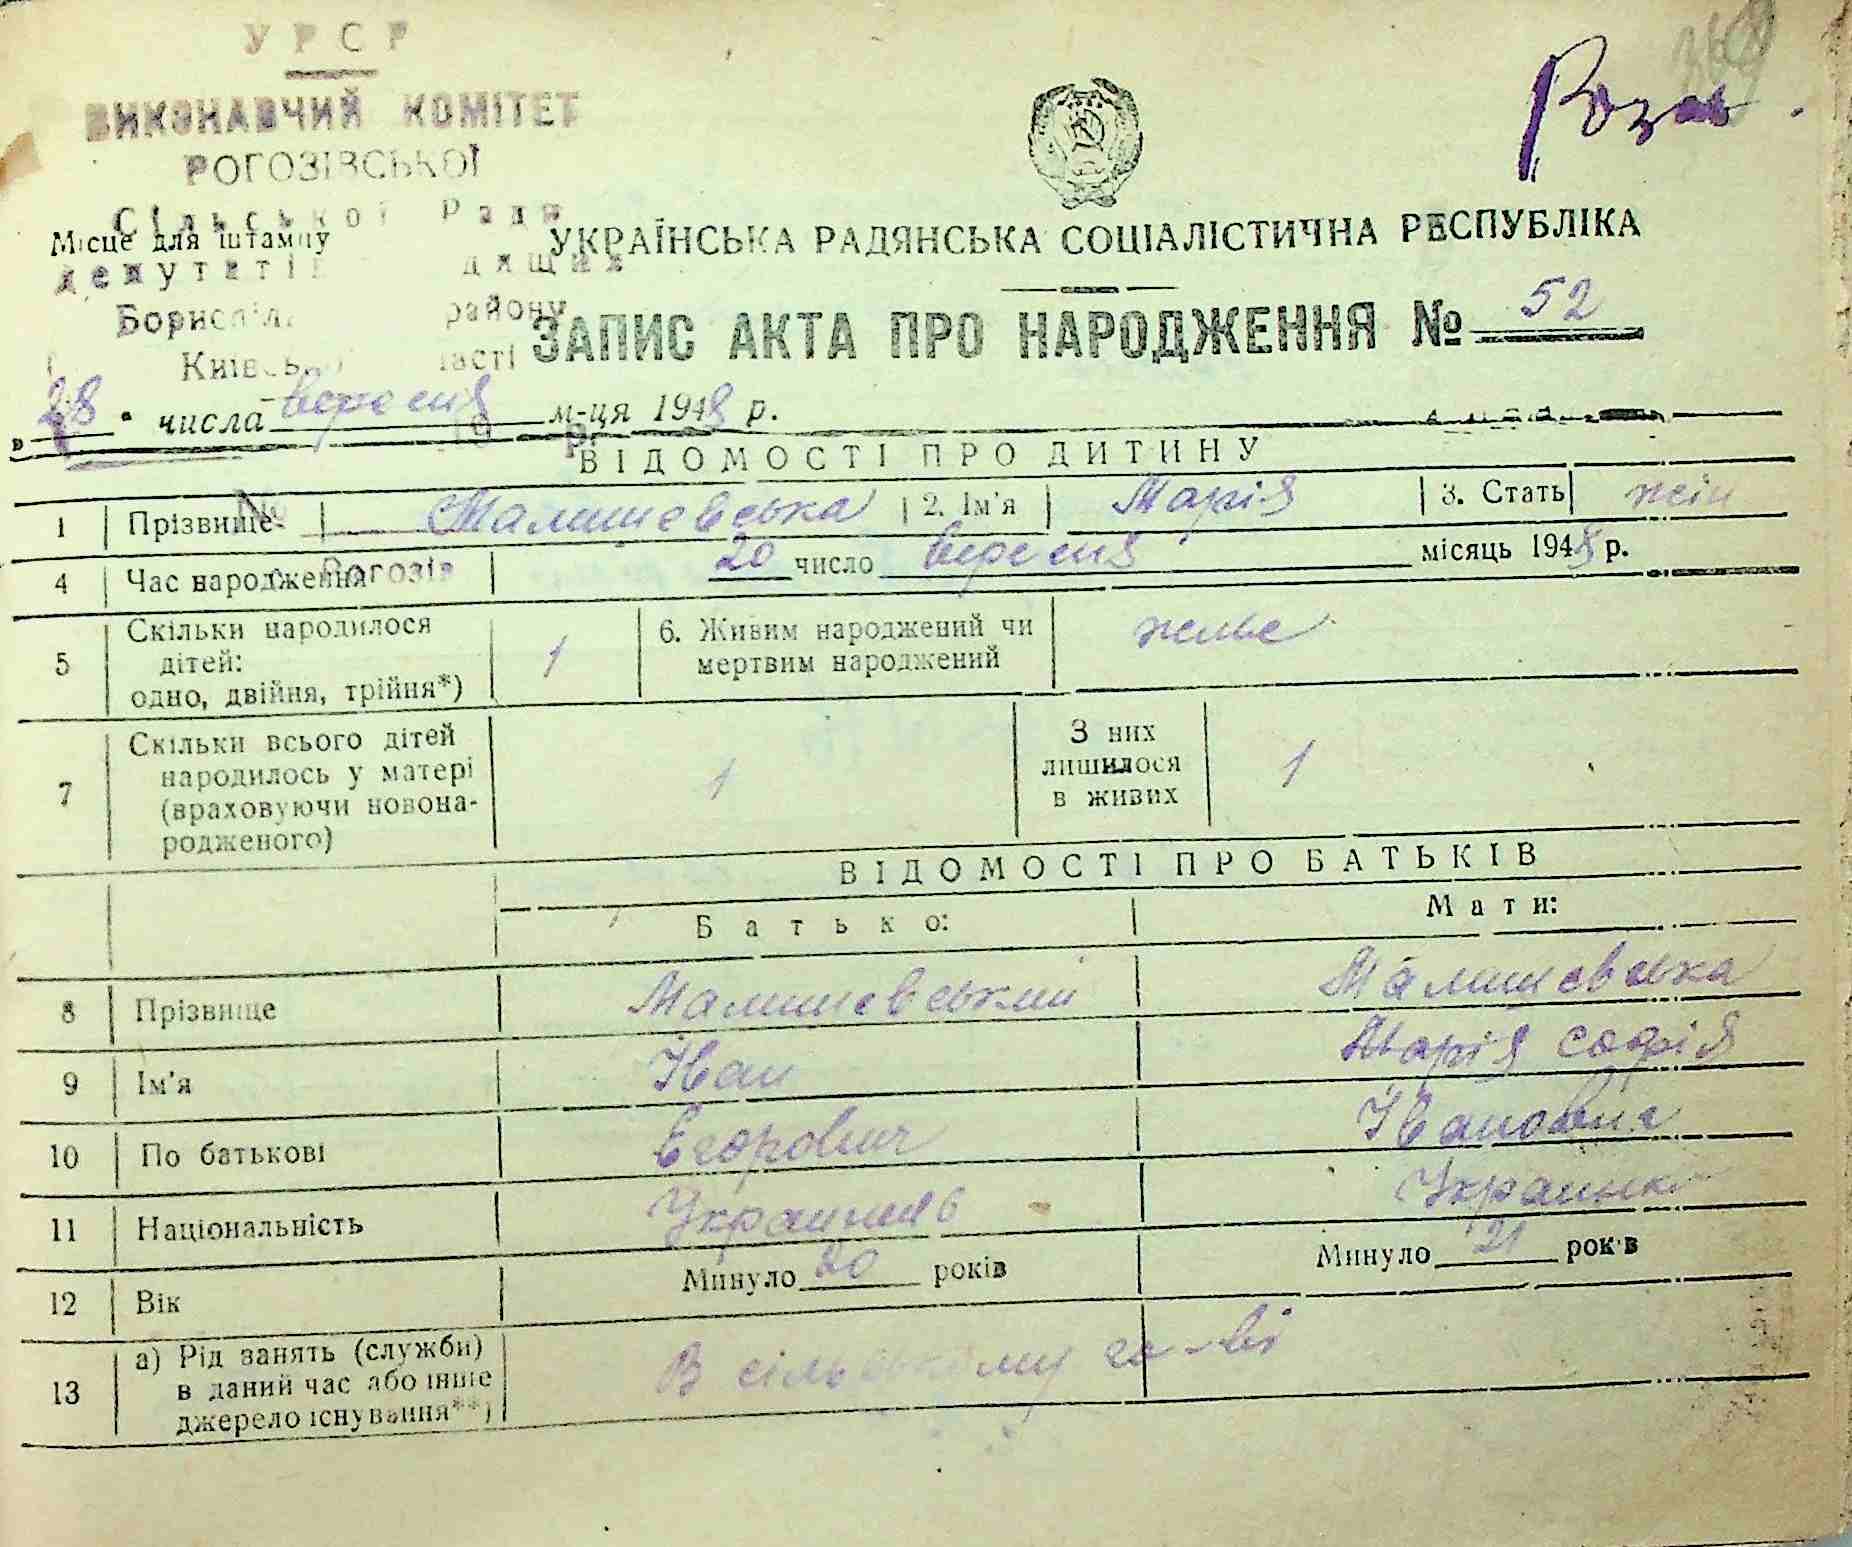 УРСР
ВИКОНАВЧИЙ КОМІТЕТ
РОГОЗІВСЬКОЇ
Сільської Ради
Місце для штампу
депутатів
Київської
району
УКРАЇНСЬКА РАДЯНСЬКА СОЦІАЛІСТИЧНА РЕСПУБЛІКА
ЗАПИС АКТА ПРО НАРОДЖЕННЯ № 52
"28" числа вересня м-ця 1948 р.
ВІДОМОСТІ ПРО ДИТИНУ
1 Прізвище Малишевська 2. Ім'я Марія 3. Стать жін
4 Час народження 20 число вересня місяць 1948 р.
Рогозів
5 Скільки народилося дітей: одно, двійня, трійня*) 1 6. Живим народжений чи мертвим народжений
7 Скільки всього дітей народилось у матері (враховуючи новонародженого) 1 З них лишилося в живих 1
ВІДОМОСТІ ПРО БАТЬКІВ
Батько: Мати:
8 Прізвище Малишевський Малишевська
9 Ім'я Іван Марія Софія
10 По батькові Егорович Івановна
11 Національність Украинець Украинка
12 Вік Минуло 20 років Минуло 21 років
13 а) Рід занять (служби) в даний час або інше джерело існування**) В сільському го-ві